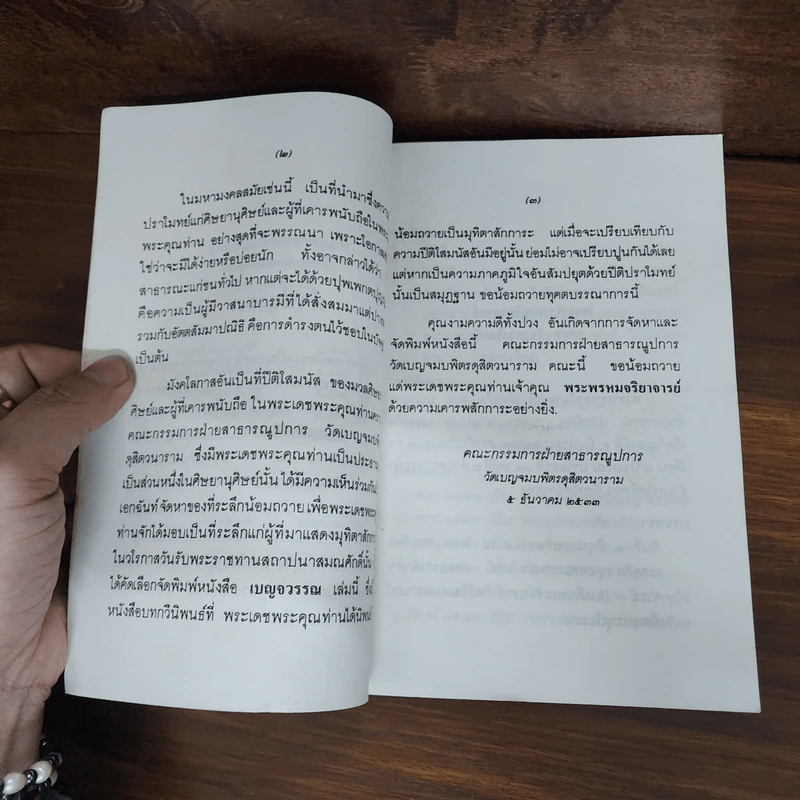 (๒)
ในมหามงคลสมัยเช่นนี้ เป็นที่นำมาซึ่งความ
ปราโมทย์แก่ศิษยานุศิษย์และผู้ที่เคารพนับถือในพระ
พระคุณท่าน อย่างสุดที่จะพรรณนา เพราะโอกาส
ใช่ว่าจะมีได้ง่ายหรือบ่อยนัก ทั้งอาจกล่าวได้ว่า
สาธารณะแก่ชนทั่วไป หากแต่จะได้ด้วยปุพเพกตปุญญ
คือความเป็นผู้มีวาสนาบารมีที่ได้สั่งสมมาแต่ปาง
รวมกับอัตตสัมมาปณิธิ คือการดำรงตนไว้ชอบใน
เป็นต้น
มังคโลกาสอันเป็นที่ปีติโสมนัส ของมวลศิษยา
ศิษย์และผู้ที่เคารพนับถือ ในพระเดชพระคุณท่าน
คณะกรรมการฝ่ายสาธารณูปการ วัดเบญจมบพิ
ดุสิตวนาราม ซึ่งมีพระเดชพระคุณท่านเป็นประธาน
เป็นส่วนหนึ่งในศิษยานุศิษย์นั้น ได้มีความเห็นร่วมกัน
เอกฉันท์ จัดหาของที่ระลึกน้อมถวาย เพื่อพระเดชพระ
ท่านจักได้มอบเป็นที่ระลึกแก่ผู้ที่มาแสดงมุทิตาสักกา
ในวโรกาสวันรับพระราชทานสถาปนาสมณศักดิ์นั้น
ได้คัดเลือกจัดพิมพ์หนังสือ เบญจวรรณ เล่มนี้ ซึ่ง
หนังสือบทกวีนิพนธ์ที่ พระเดชพระคุณท่านได้นิพนธ์
(๓)
น้อมถวายเป็นมุทิตาสักการะ แต่เมื่อจะเปรียบเทียบกับ
ความปีติโสมนัสอันมีอยู่นั้น ย่อมไม่อาจเปรียบปูนกันได้เลย
แต่หากเป็นความภาคภูมิใจอันสัมปยุตด้วยปีติปราโมทย์
นั้นเป็นสมุฏฐาน ขอน้อมถวายทุคตบรรณาการนี้
คุณงามความดีทั้งปวง อันเกิดจากการจัดหาและ
จัดพิมพ์หนังสือนี้ คณะกรรมการฝ่ายสาธารณูปการ
วัดเบญจมบพิตรดุสิตวนาราม คณะนี้ ขอน้อมถวาย
แด่พระเดชพระคุณท่านเจ้าคุณ พระพรหมจริยาจารย์
ด้วยความเคารพสักการะอย่างยิ่ง.
คณะกรรมการฝ่ายสาธารณูปการ
วัดเบญจมบพิตรดุสิตวนาราม
๕ ธันวาคม ๒๕๓๓